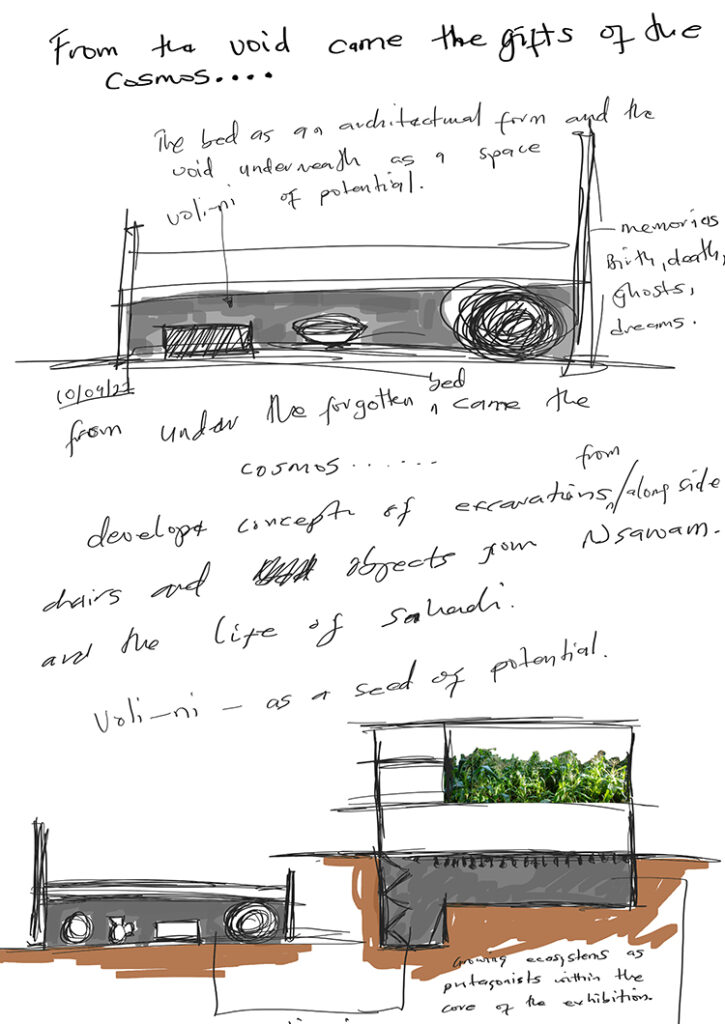 From the void came the gifts of the
cosmos....
The bed as an architectural form and the
void underneath as a space
voli-ni of potential.
memories
Birth, death,
ghosts,
dreams.
bed
from under the forgotten ^ came the
cosmos......
from
develop concept of excavations ^ / along side
chairs and objects from Nsawam.
and the life of
Voli-ni - as a seed of potential.
Growing ecosystems as
protagonists within the
core of the exhibition.